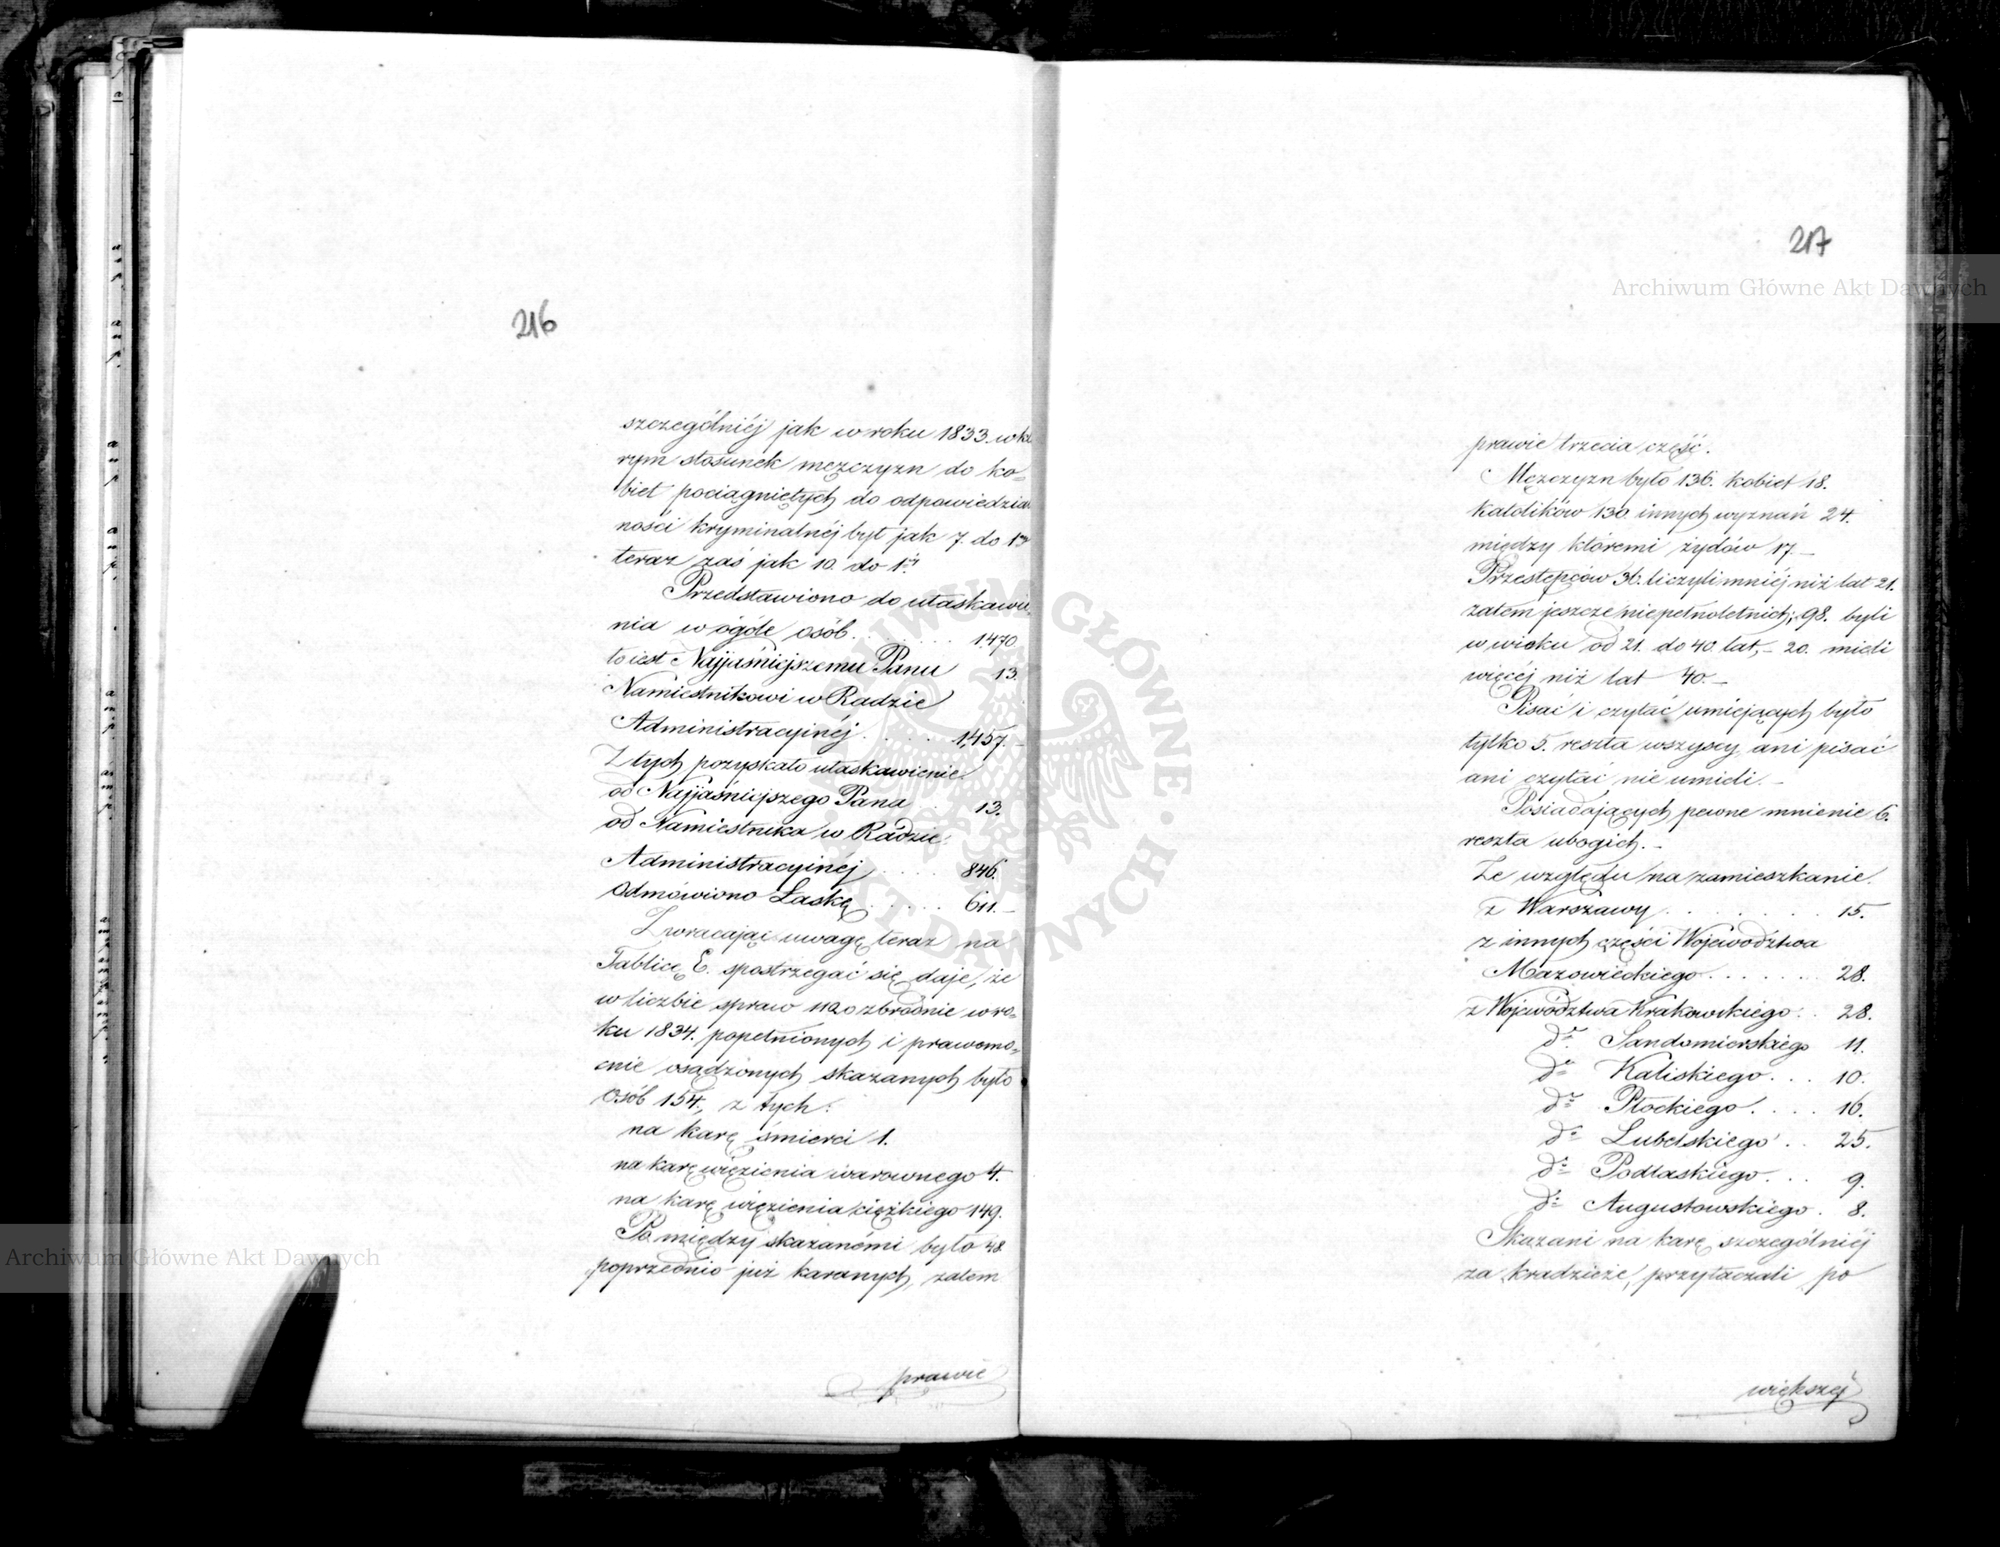 216
szczególniéj jak w roku 1833. w któ
rym stosunek mężczyzn do ko=
biet pociągniętych do odpowiedzial
ności kryminalnéj był jak 7. do 1ej
teraz zaś jak 10. do 1éj
Przedstawiono do ułaskawie
nia w ogóle osób . . . . . . . 1470
to iest Najjaśniejszemu Panu 13.
Namiestnikowi w Radzie
Administracyjnéj . . . . . 1,457.—
Z tych pozyskało ułaskawienie
od Najjaśniejszego Pana . 13.
od Namiestnika w Radzie
Administracyjnéj . . . . 846.
Odmówiono Łaskę . . . . . 611.—
Zwracając uwagę teraz na
Tablicę E. spostrzegać się daje, że
w liczbie spraw o zbrodnie w ro=
ku 1834. popełnionych i prawomo=
cnie osądzonych skazanych było
Osób 154., z tych:
na karę śmierci 1.
na karę więzienia warownego 4.
na karę więzienia ciężkiego 149.
Pomiędzy skazanémi było 48
poprzednio już karanych, zatem
prawie
217
prawie trzecia część.
Mężczyzn było 136. kobiet 18.
Katolików 130. innych wyznań 24.
między któremi żydów 17.—
Przestępców 36. liczyli mniéj niż lat 21.
zatem jeszcze niepełnoletnich; 98. byli
w wieku od 21. do 40. lat,— 20. mieli
więcéj niż lat 40.—
Pisać i czytać umiejących było
tylko 5. reszta wszyscy ani pisać
ani czytać nie umieli.—
Posiadających pewne mnienie 6.
reszta ubogich.—
Ze względu na zamieszkanie.
z Warszawy . . . . . . . 15.
z innych części Województwa
Mazowieckiego . . . . . . 28.
z Województwa Krakowskiego . . 28.
do Sandomierskiego 11.
do Kaliskiego . . . 10.
do Płockiego . . . . 16.
do Lubelskiego . . 25.
do Podlaskiego . . . 9.
do Augustowskiego . 8.
Skazani na karę szczególniéj
za kradzieże, przytaczali po
większej
Archiwum Główne Akt Dawnych
Archiwum Główne Akt Dawnych
ARCHIWUM GŁÓWNE AKT DAWNYCH